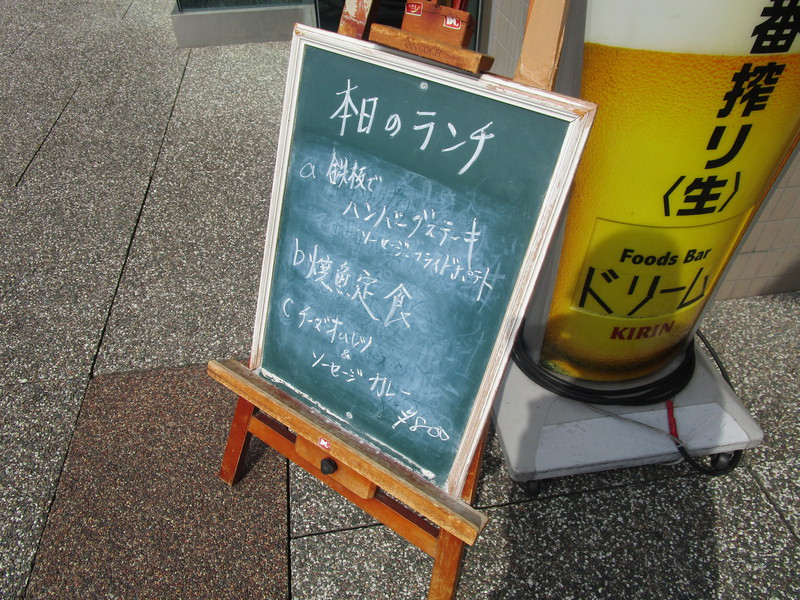 本日のランチ
a 鉄板で
ハンバーグステーキ
ソーセージ、フライドポテト
b 焼魚定食
c チーズオムレツ
&
ソーセージ カレー
¥800
番搾り
〈生〉
Foods Bar
ドリーム
KIRIN